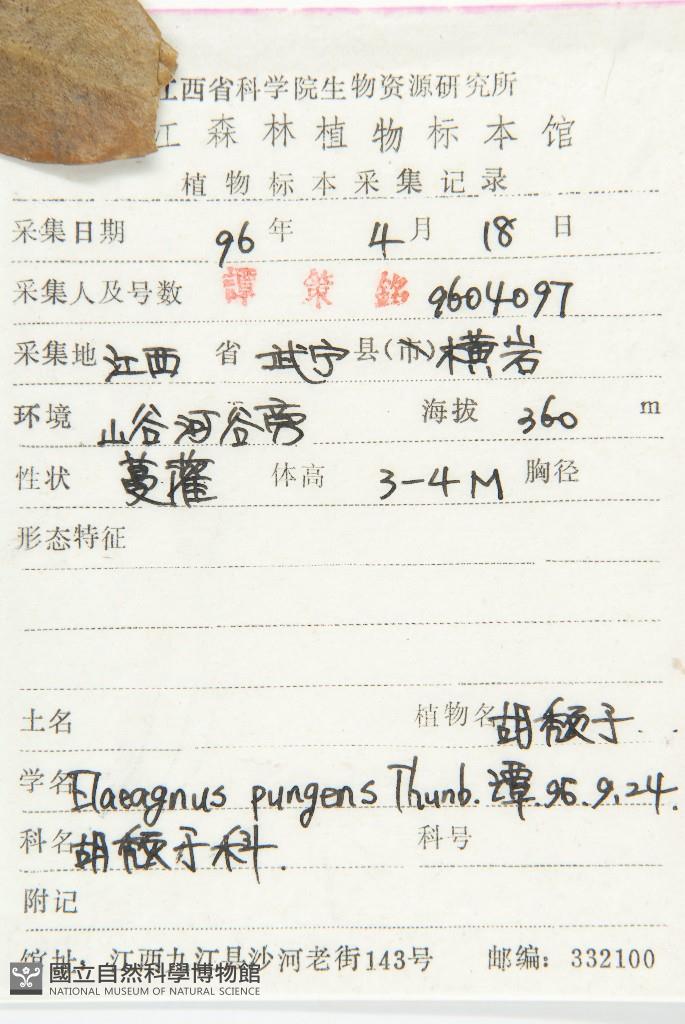 江西省科学院生物资源研究所
江森林植物标本馆
植物标本采集记录
采集日期 96年 4月 18日
采集人及号数 譚策銘 9604097
采集地 江西 省 武宁 县(市) 横岩
环境 山谷河谷旁 海拔 360 m
性状 蔓灌 体高 3-4M 胸径
形态特征
土名 植物名 胡颓子.
学名 Elaeagnus pungens Thunb. 譚.96.9.24.
科名 胡颓子科. 科号
附记
馆址:江西九江县沙河老街143号 邮编:332100
國立自然科學博物館
NATIONAL MUSEUM OF NATURAL SCIENCE